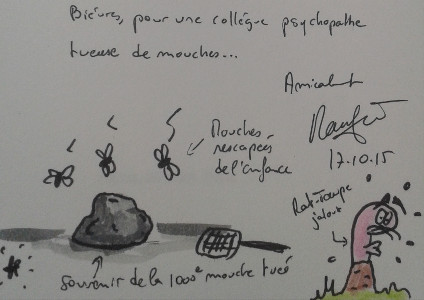 Bièvres, pour une collègue psychopathe
tueuse de mouches...
Amicalement
17.10.15
Mouches
rescapées
de l'enfance
Rat-taupe
jaloux
Souvenir de la 1000e mouche tuée